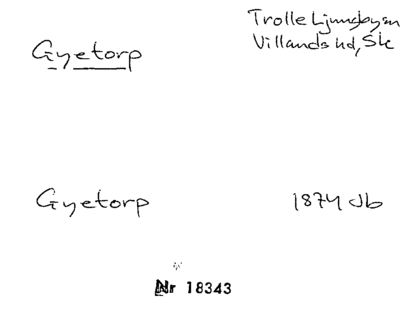 Gyetorp
Trolle Ljungbysn
Villands hd, Sk
Gyetorp
1874 Jb
Nr 18343